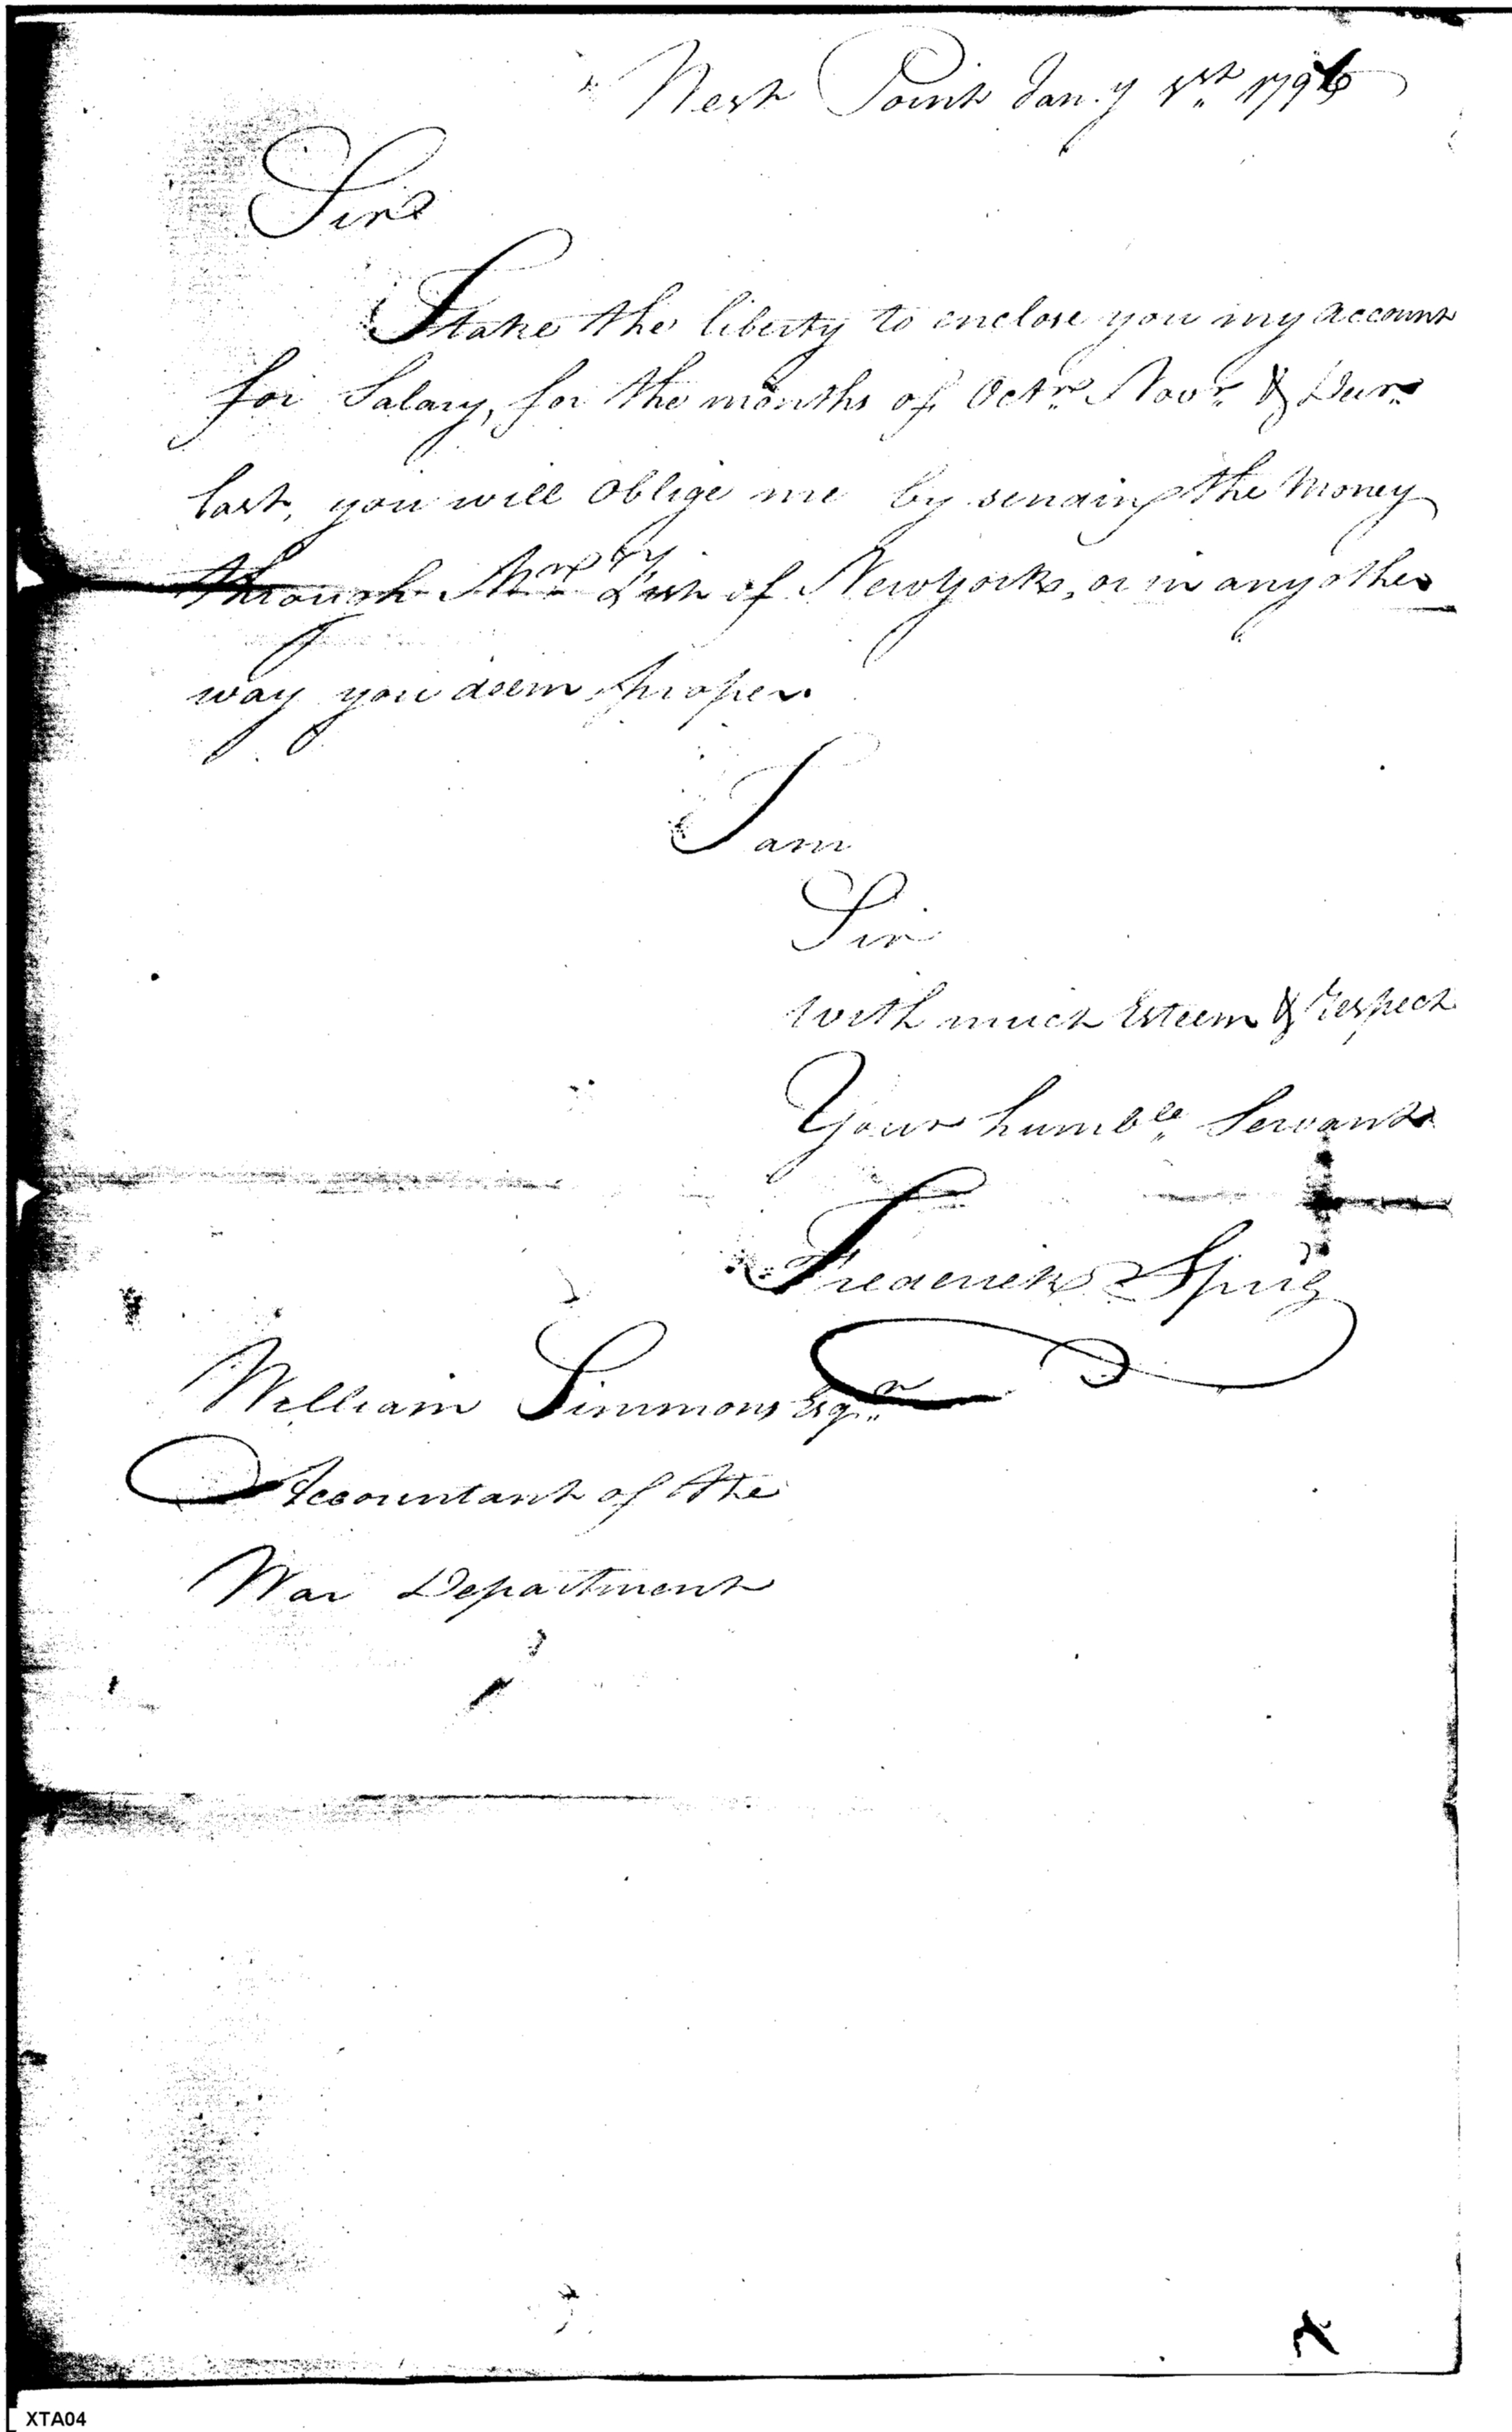 West Point Jan.y 1st 1796
Sir
I take the liberty to enclose you my account
for Salary, for the months of Octr Novr & Decr
last, you will oblige me by sending the Money
through Mr of New York, or in any other
way you deem proper.
I am
Sir
with much Esteem & respect
Your humble Servant
Frederick Sprig
William Simmons Esqr
Accountant of the
War Department
XTA04